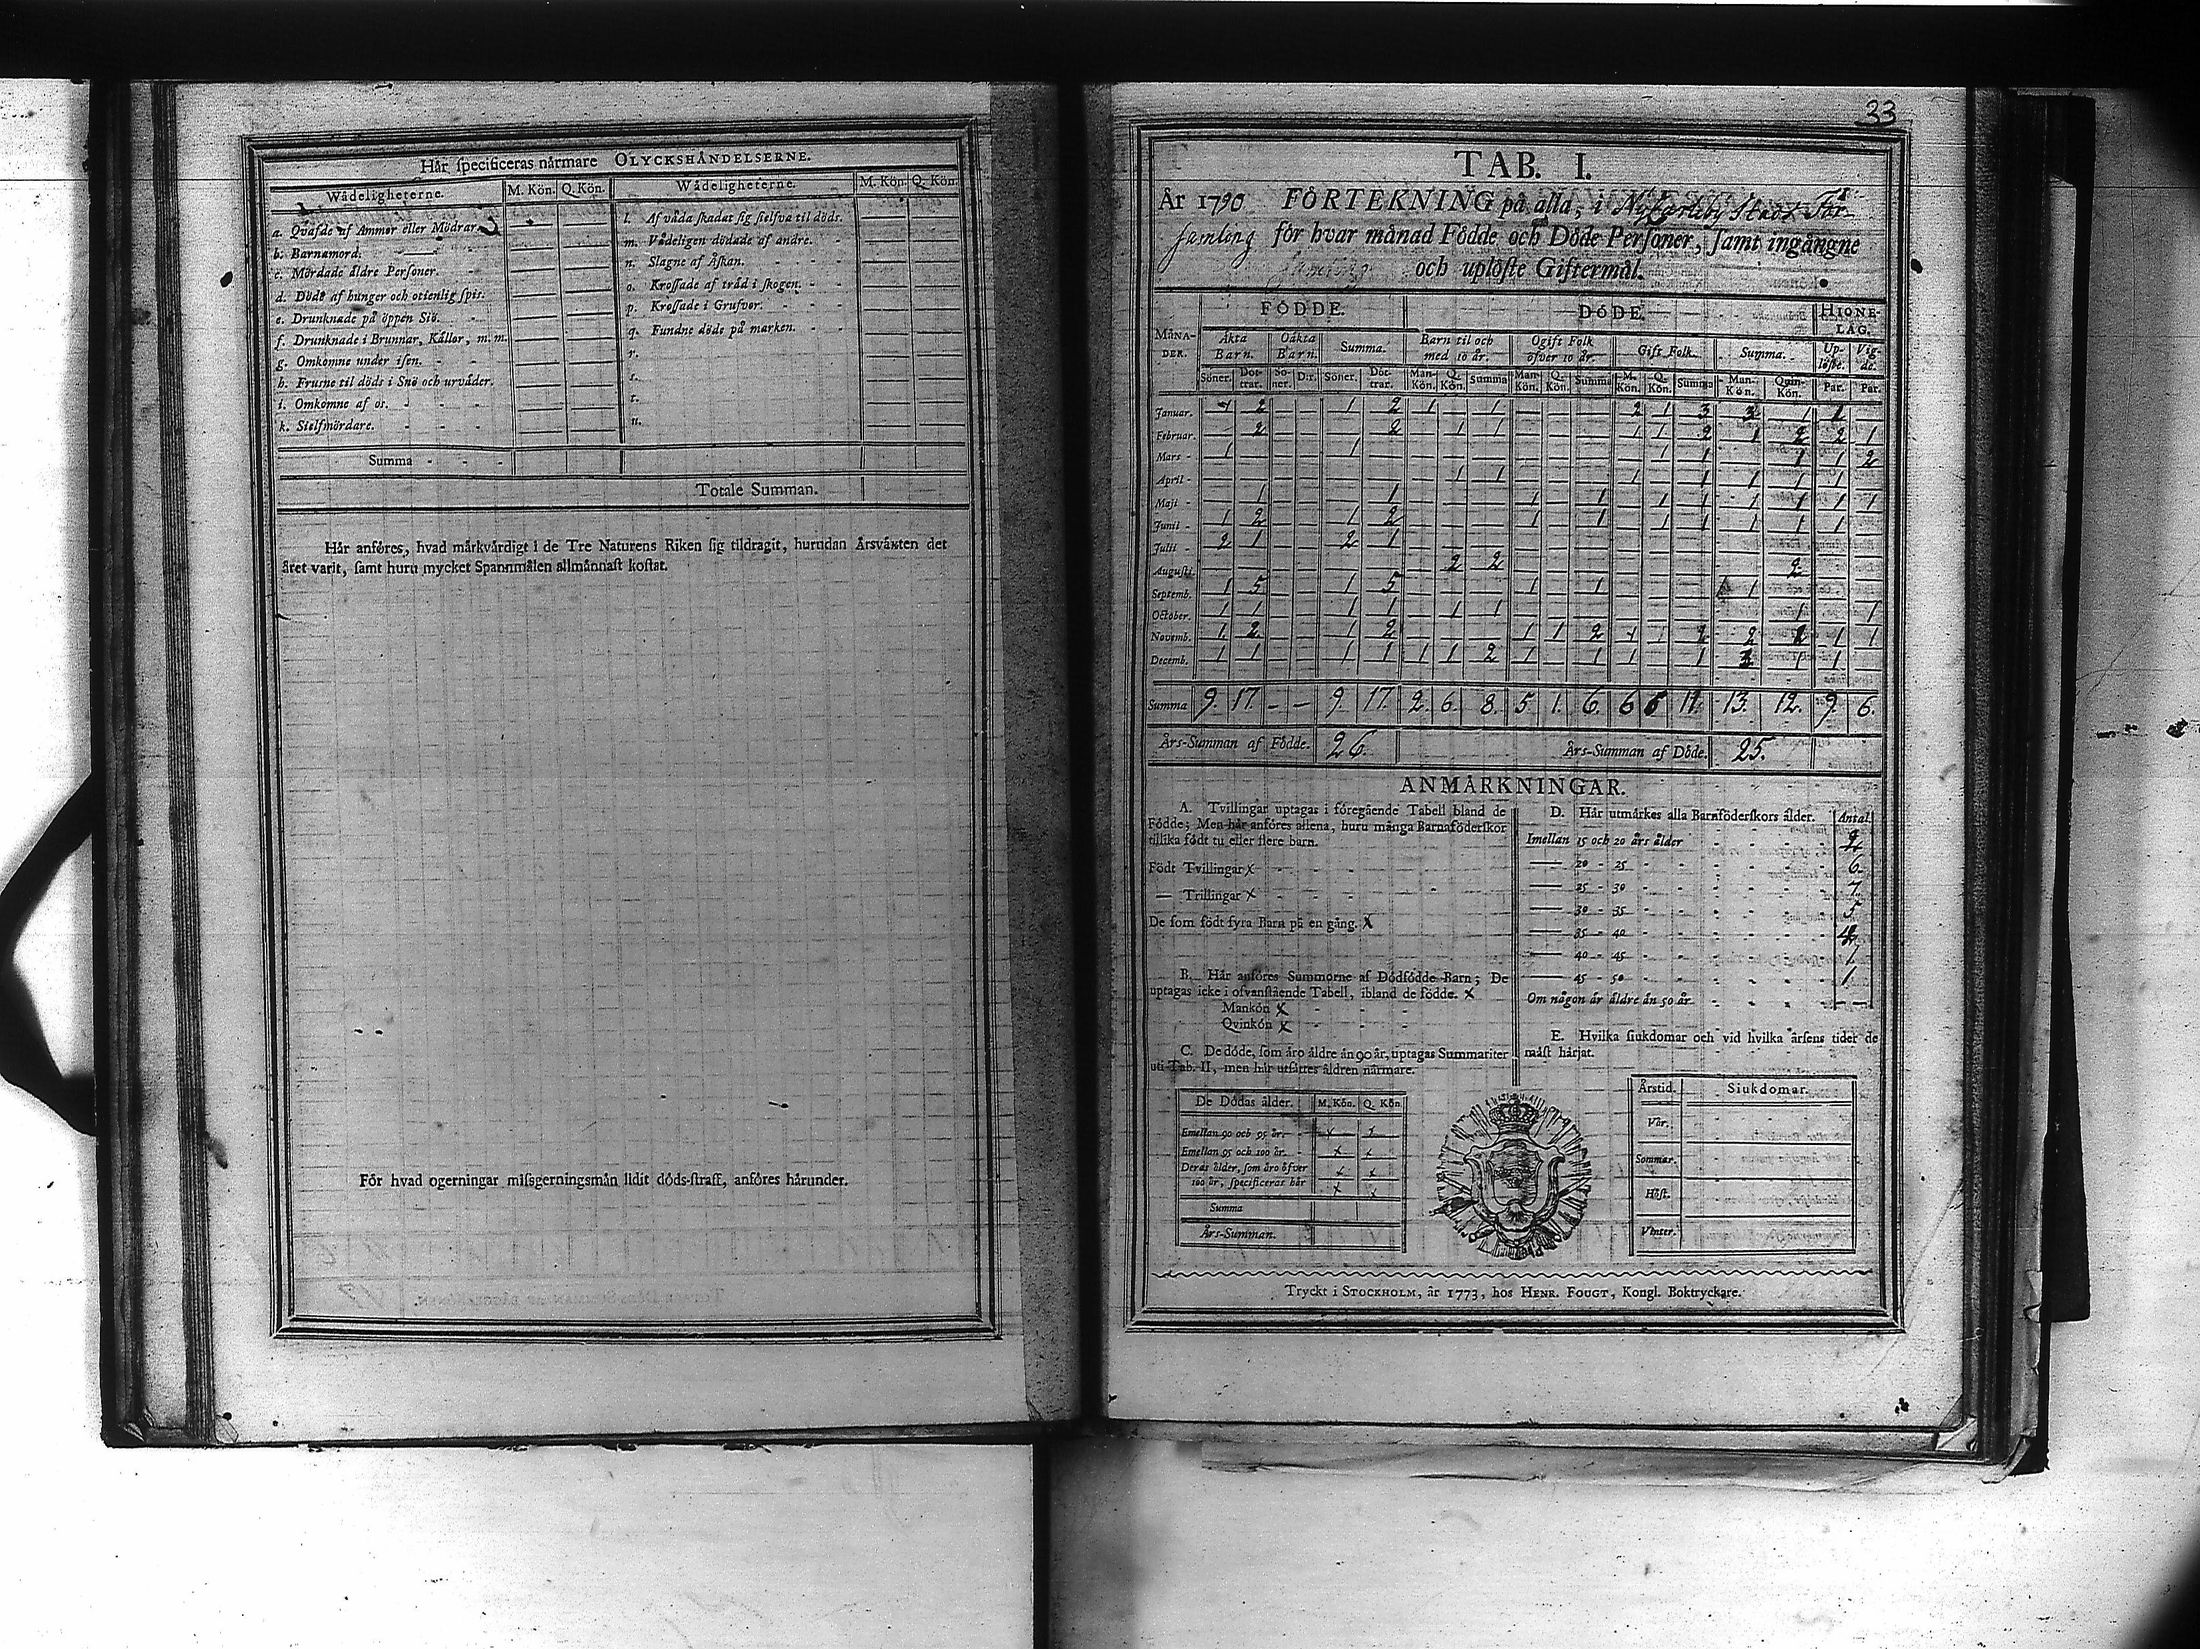 Hår ſpecificeras nårmare OLYCKSHÅNDELSERNE.
Wådeligheterne. M. Kön. Q. Kön. Wådeligheterne. M. Kön. Q. Kön.
a. Qväfde af Ammor eller Mödrar
b. Barnamord.
c. Mördade äldre Perſoner.
d. Döde af hunger och otienlig ſpis.
e. Drunknade på öppen Siö.
f. Drunknade i Brunnar, Källor, m. m.
g. Omkomne under iſen.
h. Fruſne til döds i Snö och urväder.
i. Omkomne af os.
k. Sielfmördare.
l. Af våda ſkadat ſig ſielfva til döds.
m. Vådeligen dödade af andre.
n. Slagne af Åſkan.
o. Kroſſade af träd i ſkogen.
p. Kroſſade i Grufvor.
q. Fundne döde på marken.
r.
s.
t.
u.
Summa
Totale Summan.
Hår anföres, hvad märkvärdigt i de Tre Naturens Riken ſig tildragit, hurudan Årsväxten det
året varit, ſamt huru mycket Spannmålen allmånnaſt koſtat.
För hvad ogerningar miſsgerningsmån lidit döds-ſtraff, anföres hårunder.
33
TAB. I.
År 1790 FÖRTEKNING på alla, i Nykarleby Stads För-
ſamling för hvar månad Födde och Döde Perſoner, ſamt ingångne
och uplöſte Giftermål.
MÅNA-DER. FÖDDE. DÖDE. HIONE-LAG.
Äkta Barn. Oäkta Barn. Summa. Barn til och med 10 år. Ogift Folk öfver 10 år. Gift Folk. Summa. Up-löſte. Vig-de.
Söner. Döt-trar. Sö-ner. D:r. Söner. Döt-trar. Man-Kön. Q. Kön. Summa Man-Kön. Q. Kön. Summa M. Kön. Q. Kön. Summa Man-Kön. Quin-Kön. Par. Par.
Januar. 1 2 — — 1 2 1 — 1 — — — 2 1 3 3 1 1 —
Februar. — 2 — — — 2 — 1 1 — — — 1 1 2 1 2 2 1
Mars 1 — — — 1 — — — — — — — — 1 1 — 1 1 2
April — — — — — — — 1 1 — — — 1 — 1 1 1 1 —
Maji — 1 — — — 1 — — — 1 — 1 — 1 1 1 1 1 1
Junii 1 2 — — 1 2 — — — 1 — 1 — 1 1 1 1 1 —
Julii 2 1 — — 2 1
Auguſti — — — — — — — 2 2 — — — — — — — 2 — —
Septemb. 1 5 — — 1 5 — — — 1 — 1 — — — 1 — — —
October. 1 1 — — 1 1 — 1 1 — — — — — — — 1 — 1
Novemb. 1 2 — — 1 2 — — — 1 1 2 1 2 2 1 1
Decemb. 1 1 — — 1 1 1 1 2 1 — 1 1 — 1 3 1 1 —
Summa 9. 17. — — 9. 17. 2. 6. 8. 5 1. 6. 6 5 11. 13. 12. 9. 6.
Års-Summan af Födde. 26. Års-Summan af Döde. 25.
ANMÅRKNINGAR.
A. Tvillingar uptagas i föregående Tabell bland de
Födde; Men hår anföres allena, huru många Barnaföderſkor
tillika födt tu eller flere barn.
Födt Tvillingar x
— Trillingar x
De ſom födt fyra Barn på en gång. x
B. Hår anföres Summorne af Dödfödde Barn; De
uptagas icke i ofvanſtående Tabell, ibland de födde. x
Mankön x
Qvinkön x
C. De döde, ſom åro åldre ån 90 år, uptagas Summariter
uti Tab. II, men hår utſåttes åldren nårmare.
De Dödas ålder. M. Kön. Q. Kön
Emellan 90 och 95 år. x x
Emellan 95 och 100 år. x x
Deras ålder, ſom åro öfver x x
100 år, ſpecificeras hår x x
Summa
Års-Summan.
D. Hår utmårkes alla Barnföderſkors ålder. Antal
Imellan 15 och 20 års ålder 2
— 20 - 25 6.
— 25 - 30 7.
— 30 - 35 5
— 35 - 40 4
— 40 - 45 1
— 45 - 50 1
Om någon är åldre ån 50 år —
E. Hvilka ſiukdomar och vid hvilka årſens tider de
måſt hårjat.
Årstid. Siukdomar.
Vår.
Sommar.
Höſt.
Vinter.
Tryckt i STOCKHOLM, år 1773, hos HENR. FOUGT, Kongl. Boktryckare.